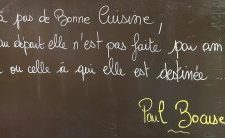 à pas de Bonne Cuisine,
au départ elle n'est pas faite par am
i ou celle à qui elle est destinée ...
Paul Bocuse